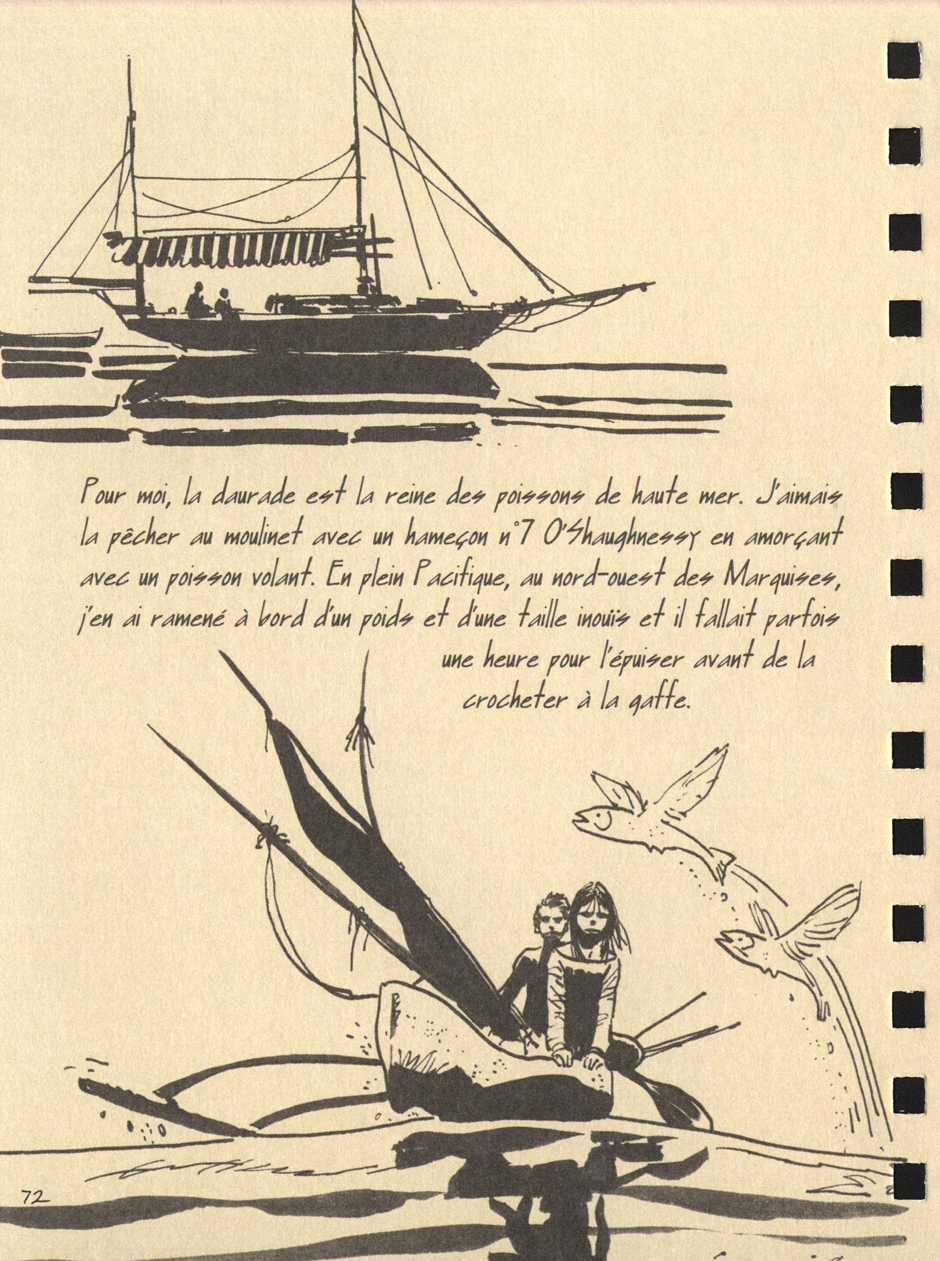 Pour moi, la daurade est la reine des poissons de haute mer. J'aimais
la pêcher au moulinet avec un hameçon n°7 O'Shaughnessy en amorçant
avec un poisson volant. En plein Pacifique, au nord-ouest des Marquises,
j'en ai ramené à bord d'un poids et d'une taille inouïs et il fallait parfois
une heure pour l'épuiser avant de la
crocheter à la gaffe.
72